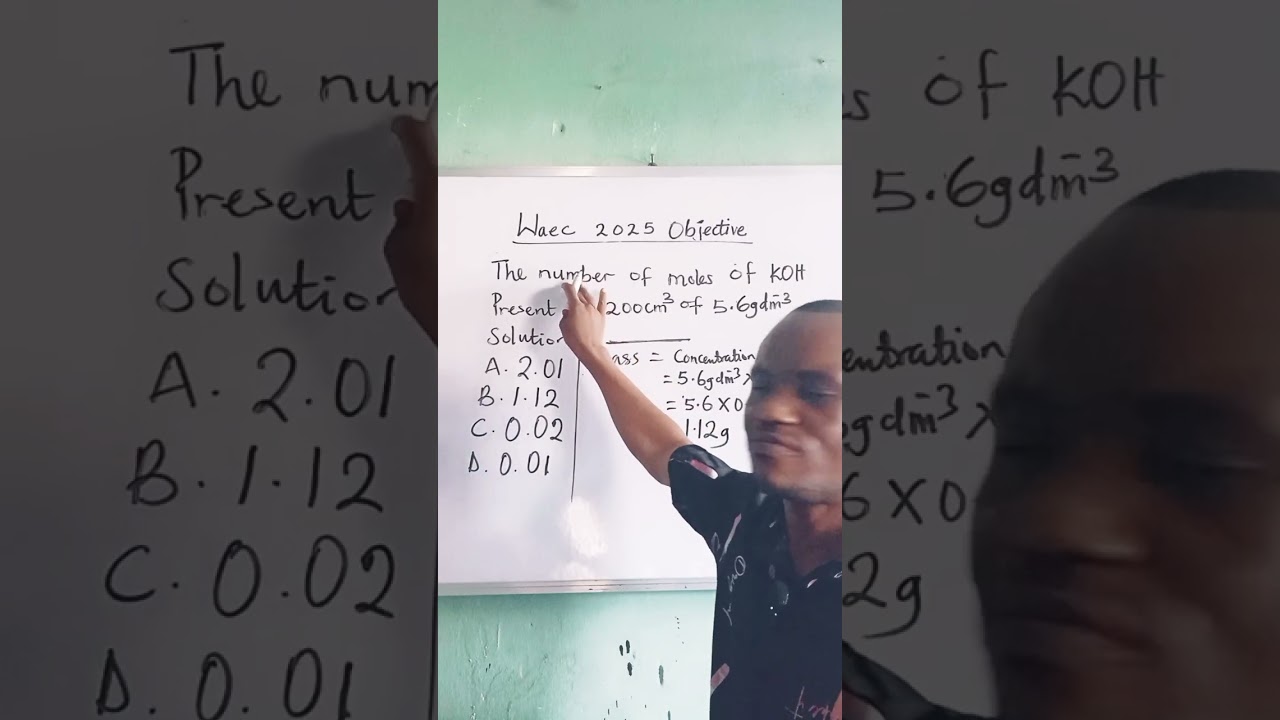 Waec 2025 Objective
The number of moles of KOH
Present 200cm³ of 5.6gdm⁻³
Solution
A. 2.01
B. 1.12
C. 0.02
D. 0.01
= Concentration
= 5.6gdm⁻³ ×
= 5.6 X 0
1.12g